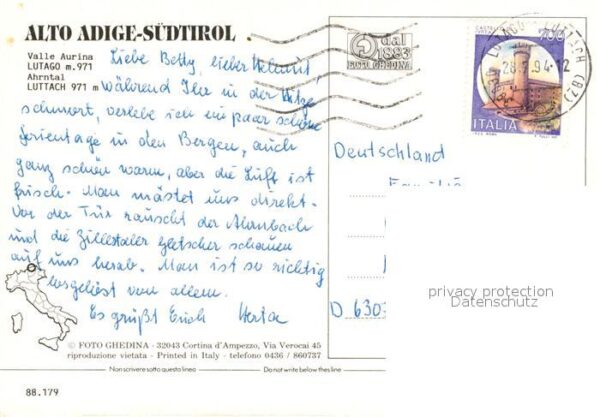 ALTO ADIGE-SÜDTIROL
Valle Aurina
LUTAGO m.971
Ahrntal
LUTTACH 971 m
Liebe Betty, lieber Helmut
Während Ihr in der Hitze
schmort, verlebe ich ein paar schöne
Ferientage in den Bergen, auch
ganz schön warm, aber die Luft ist
frisch. Man mästet uns direkt.
Vor der Tür rauscht der Ahrnbach
und die Zillertaler Gletscher schauen
auf uns herab. Man ist so richtig
losgelöst von allem.
Es grüßt Euch Herta
dal
1883
FOTO GHEDINA
700
ITALIA
LUTAGO - LUTTACH (BZ)
94-12
Deutschland
Familie
D 630
privacy protection
Datenschutz
© FOTO GHEDINA - 32043 Cortina d'Ampezzo, Via Verocai 45
riproduzione vietata - Printed in Italy - telefono 0436 / 860737
Non scrivere sotto questa linea Do not write below this line
88.179